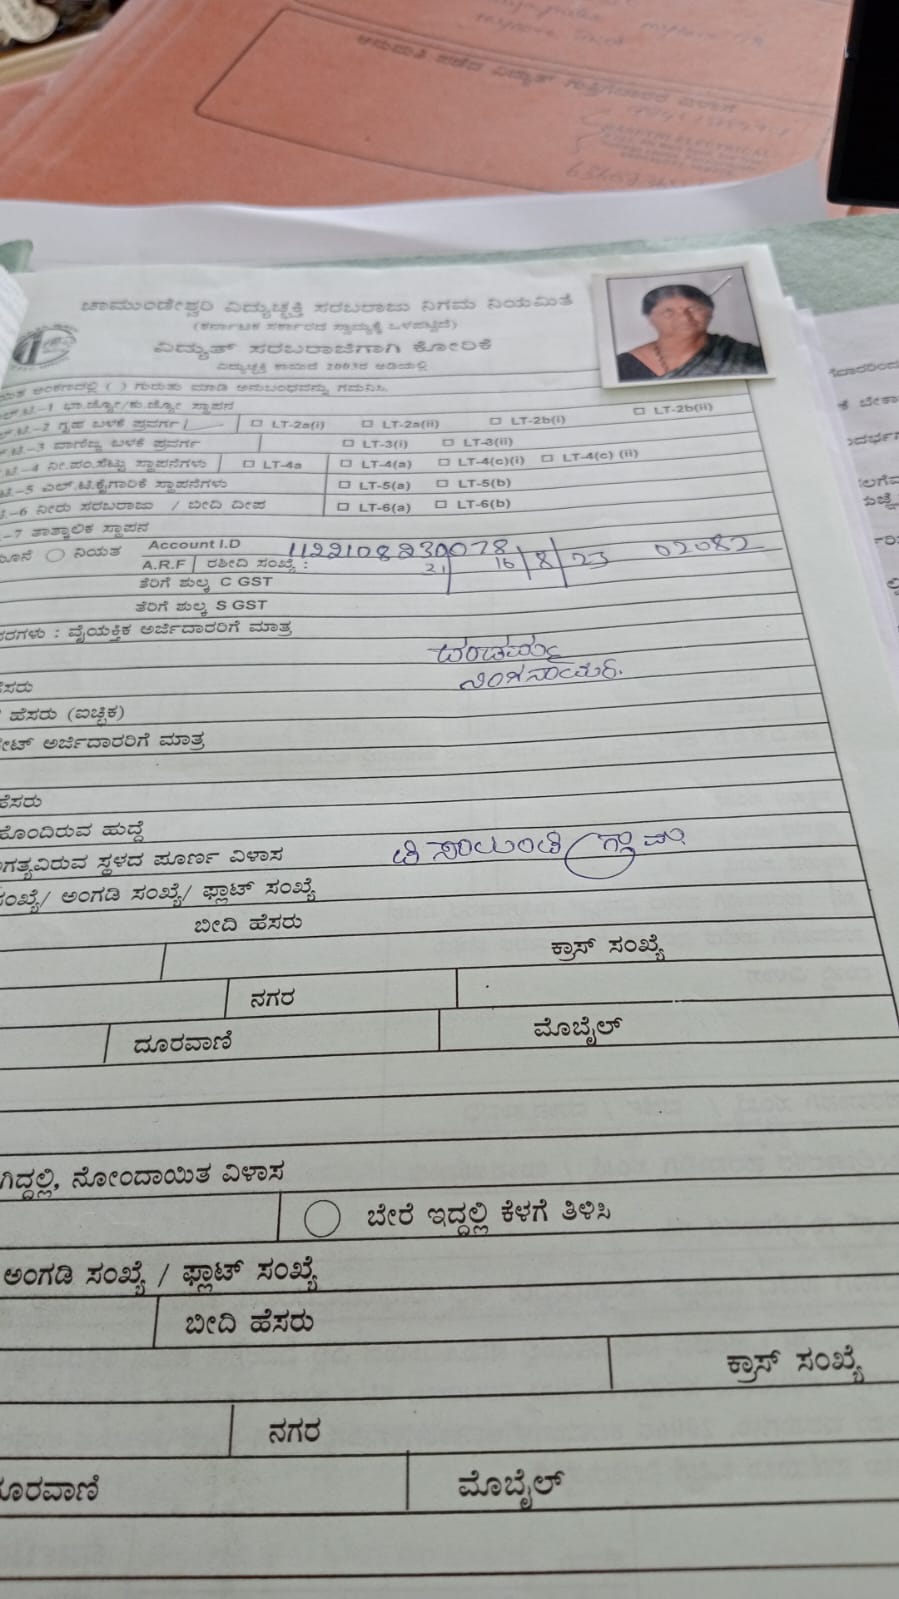 ಅನುಮತಿ ಪಡೆದ ವಿದ್ಯುತ್ ಗುತ್ತಿಗೆದಾರರ ವಿಳಾಸ
ELECTRICAL
ಚಾಮುಂಡೇಶ್ವರಿ ವಿದ್ಯುಚ್ಛಕ್ತಿ ಸರಬರಾಜು ನಿಗಮ ನಿಯಮಿತ
(ಕರ್ನಾಟಕ ಸರ್ಕಾರದ ಸ್ವಾಮ್ಯಕ್ಕೆ ಒಳಪಟ್ಟಿದೆ)
ವಿದ್ಯುತ್ ಸರಬರಾಜಿಗಾಗಿ ಕೋರಿಕೆ
ವಿದ್ಯುಚ್ಛಕ್ತಿ ಕಾಯಿದೆ 2003ರ ಅಡಿಯಲ್ಲಿ
ಅಂಕಣದಲ್ಲಿ ( ) ಗುರುತು ಮಾಡಿ ಅನುಬಂಧವನ್ನು ಗಮನಿಸಿ.
–1 ಭಾ.ಜ್ಯೋ/ಕು.ಜ್ಯೋ ಸ್ಥಾಪನ
–2 ಗೃಹ ಬಳಕೆ ಪ್ರವರ್ಗ LT-2a(i) LT-2a(ii) LT-2b(i) LT-2b(ii)
–3 ವಾಣಿಜ್ಯ ಬಳಕೆ ಪ್ರವರ್ಗ LT-3(i) LT-3(ii)
–4 ನೀ.ಪಂ.ಸೆಟ್ಟು ಸ್ಥಾಪನೆಗಳು LT-4a LT-4(a) LT-4(c)(i) LT-4(c) (ii)
–5 ಎಲ್.ಟಿ.ಕೈಗಾರಿಕೆ ಸ್ಥಾಪನೆಗಳು LT-5(a) LT-5(b)
–6 ನೀರು ಸರಬರಾಜು / ಬೀದಿ ದೀಪ LT-6(a) LT-6(b)
–7 ತಾತ್ಕಾಲಿಕ ಸ್ಥಾಪನ
ನಿಯತ Account I.D 1122108230078
A.R.F ರಶೀದಿ ಸಂಖ್ಯೆ : 21 16/8/23 02082
ತೆರಿಗೆ ಶುಲ್ಕ C GST
ತೆರಿಗೆ ಶುಲ್ಕ S GST
: ವೈಯಕ್ತಿಕ ಅರ್ಜಿದಾರರಿಗೆ ಮಾತ್ರ
ಹೆಸರು
ಹೆಸರು (ಐಚ್ಛಿಕ)
ಅರ್ಜಿದಾರರಿಗೆ ಮಾತ್ರ
ಹೆಸರು
ಹೊಂದಿರುವ ಹುದ್ದೆ
ಸ್ಥಳದ ಪೂರ್ಣ ವಿಳಾಸ
ಅಂಗಡಿ ಸಂಖ್ಯೆ/ ಫ್ಲಾಟ್ ಸಂಖ್ಯೆ
ಬೀದಿ ಹೆಸರು
ಕ್ರಾಸ್ ಸಂಖ್ಯೆ
ನಗರ
ದೂರವಾಣಿ ಮೊಬೈಲ್
ನೋಂದಾಯಿತ ವಿಳಾಸ
ಬೇರೆ ಇದ್ದಲ್ಲಿ ಕೆಳಗೆ ತಿಳಿಸಿ
ಅಂಗಡಿ ಸಂಖ್ಯೆ / ಫ್ಲಾಟ್ ಸಂಖ್ಯೆ
ಬೀದಿ ಹೆಸರು
ಕ್ರಾಸ್ ಸಂಖ್ಯೆ
ನಗರ
ದೂರವಾಣಿ ಮೊಬೈಲ್